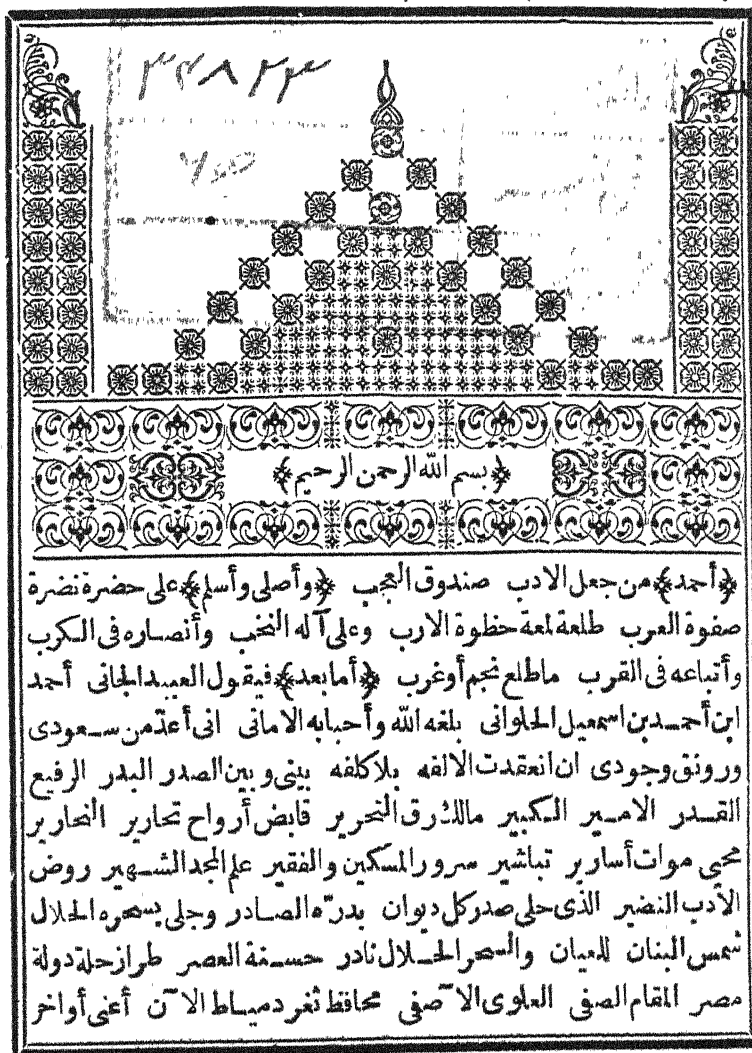 ٣٤٨٢٣
﴿بسم الله الرحمن الرحيم﴾
﴿أحمد﴾ من جعل الادب صندوق العجب ﴿وأصلى وأسلم﴾ على حضرة نضرة
صفوة العرب طلعة لمعة حظوة الارب وعلى آله النخب وأنصاره فى الكرب
وأتباعه فى القرب ما طلع نجم أو غرب ﴿أما بعد﴾ فيقول العبيد الجانى أحمد
ابن أحمد بن اسمعيل الحلوانى بلغه الله وأحبابه الامانى انى أعدّ من سعودى
ورونق وجودى ان انعقدت الالفه بلا كلفه بينى وبين الصدر البدر الرفيع
القدر الامير الكبير مالك رق التحرير قابض أرواح تحارير النحارير
محيى موات أسارير تباشير سرور المسكين والفقير علم المجد الشهير روض
الادب النضير الذى حلى صدر كل ديوان بدرّه الصادر وجلى بسحره الحلال
شمس البنان للعيان والسحر الحلال نادر حسنة العصر طراز حلة دولة
مصر المقام الصفى العلوى الآصفى محافظ ثغر دمياط الآن أعنى أواخر